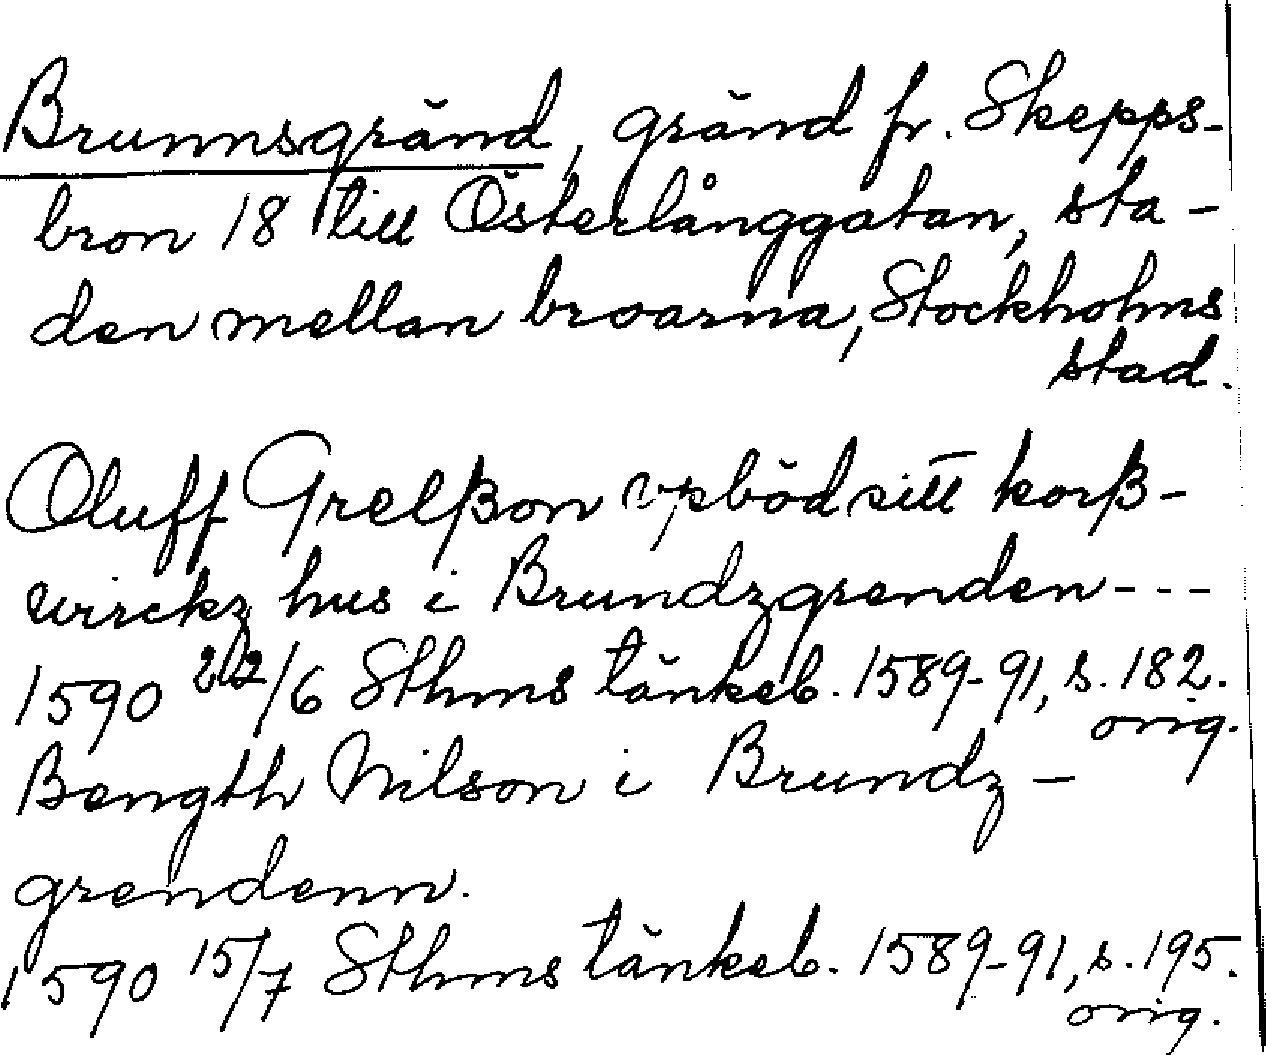 Brunnsgränd, gränd fr. Skepps-
bron 18 till Österlånggatan, sta-
den mellan broarna, Stockholms
stad.
Oluff Grelßon vpböd sitt korß-
wirckz hus i Brundzgrenden---
1590 22/6 Sthms tänkeb. 1589-91, s. 182.
orig.
Bength Nilson i Brundz-
grendenn.
1590 15/7 Sthms tänkeb. 1589-91, s. 195.
orig.